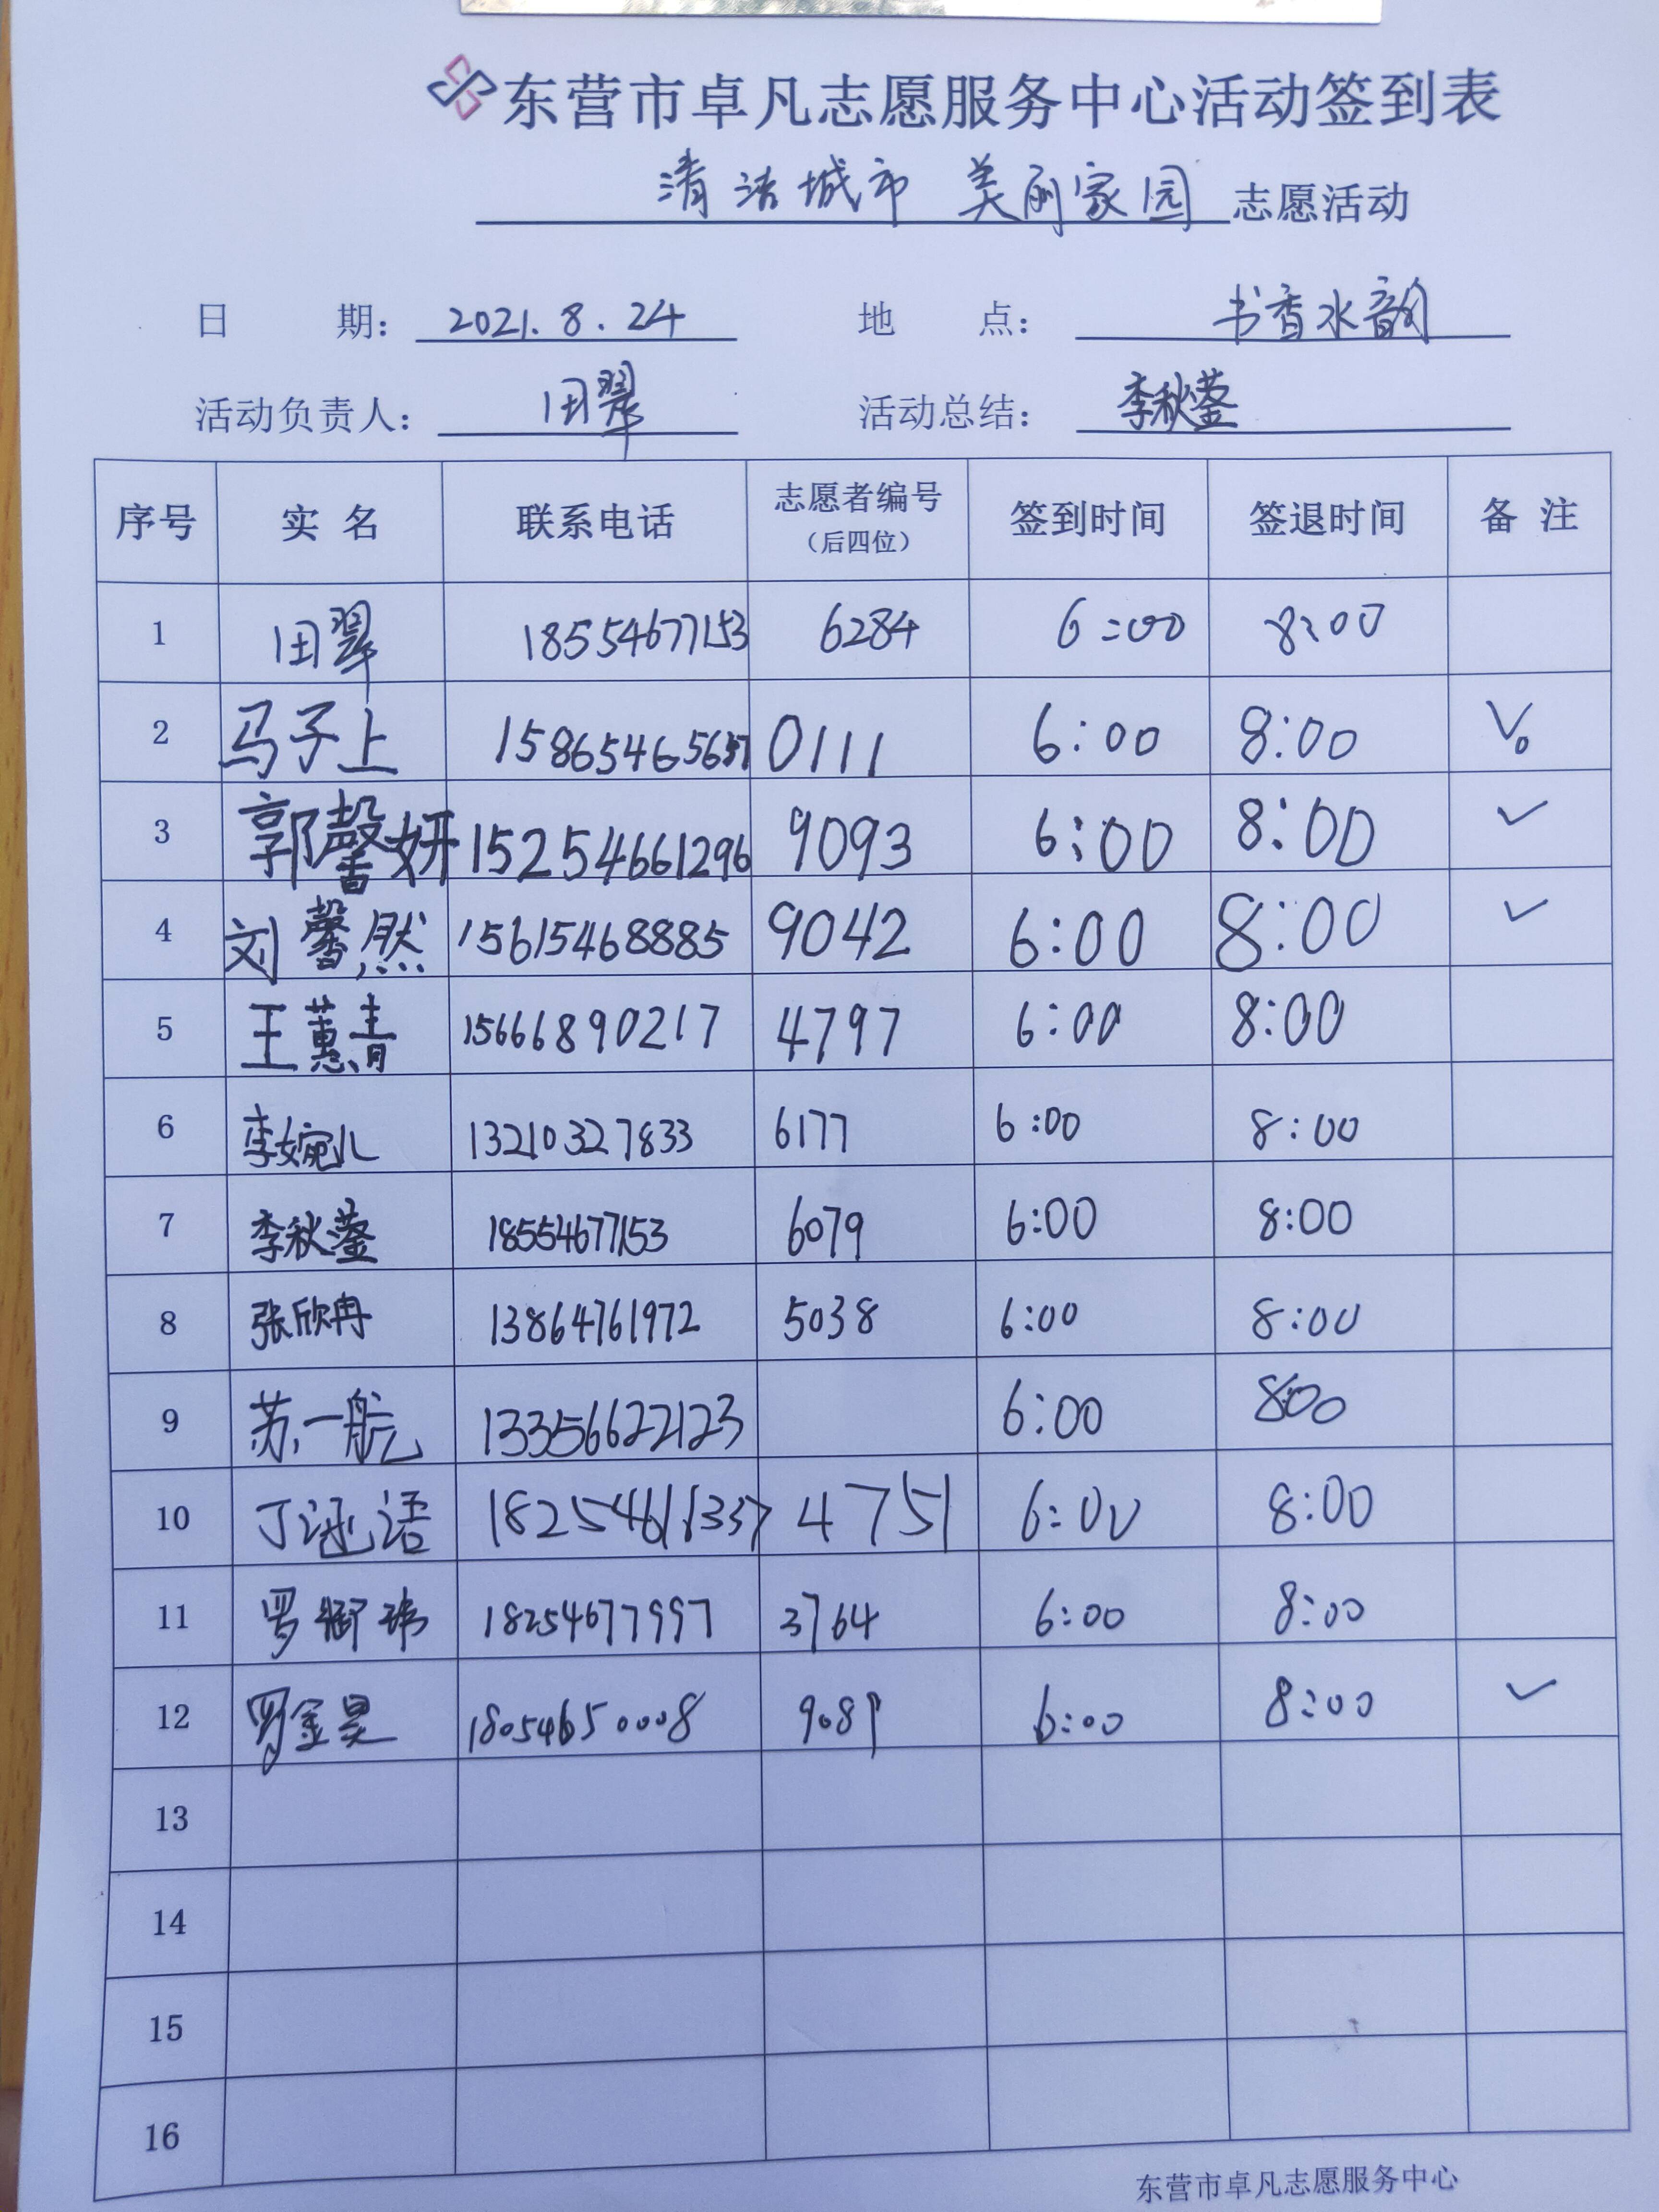 东营市卓凡志愿服务中心活动签到表
清洁城市 美丽家园 志愿活动
日 期： 2021.8.24 地 点： 书香水韵
活动负责人： 田翠 活动总结： 李秋蓥
序号 实 名 联系电话 志愿者编号（后四位） 签到时间 签退时间 备 注
1 田翠 18554677153 6284 6:00 8:00
2 马子上 0111 6:00 8:00 √。
3 郭馨妍 15254661296 9093 6:00 8:00 ✓
4 刘馨然 15615468885 9042 6:00 8:00 ✓
5 王蕙青 15666890217 4797 6:00 8:00
6 李婉儿 13210327833 6177 6:00 8:00
7 李秋蓥 18554677153 6079 6:00 8:00
8 张欣冉 13864761972 5038 6:00 8:00
9 苏一航 13356622123 6:00 8:00
10 丁涵语 18254611337 4751 6:00 8:00
11 罗御玮 18254677997 3764 6:00 8:00
12 罗金昊 18054650008 9081 6:00 8:00 ✓
13
14
15
16
东营市卓凡志愿服务中心